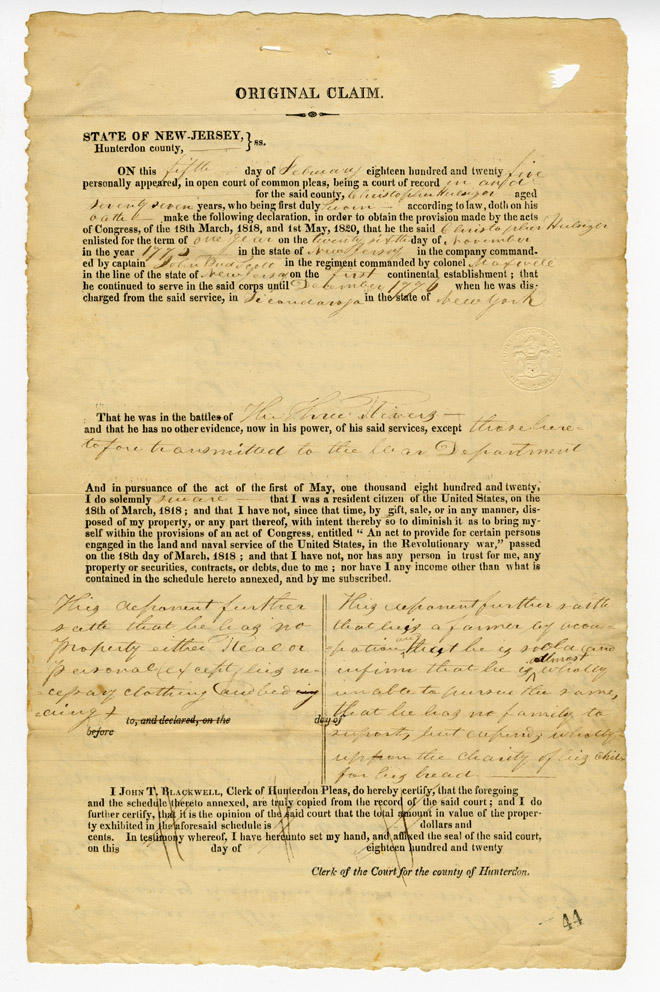 ORIGINAL CLAIM.
STATE OF NEW-JERSEY, } ss.
Hunterdon county,
ON this fifth day of February eighteen hundred and twenty five
personally appeared, in open court of common pleas, being a court of record in and
for the said county, Christopher Hulsizer aged
seventy seven years, who being first duly sworn according to law, doth on his
oath make the following declaration, in order to obtain the provision made by the acts
of Congress, of the 18th March, 1818, and 1st May, 1820, that he the said Christopher Hulsizer
enlisted for the term of one year on the twenty sixth day of November
in the year 1775 in the state of New Jersey in the company command-
ed by captain John in the regiment commanded by colonel Maxwell
in the line of the state of New Jersey on the first continental establishment; that
he continued to serve in the said corps until December 1776 when he was dis-
charged from the said service, in Ticondaroga in the state of New York
That he was in the battles of The Three Rivers
and that he has no other evidence, now in his power, of his said services, except those here-
tofore transmitted to the War Department
And in pursuance of the act of the first of May, one thousand eight hundred and twenty,
I do solemnly sweare that I was a resident citizen of the United States, on the
18th of March, 1818; and that I have not, since that time, by gift, sale, or in any manner, dis-
posed of my property, or any part thereof, with intent thereby so to diminish it as to bring my-
self within the provisions of an act of Congress, entitled "An act to provide for certain persons
engaged in the land and naval service of the United States, in the Revolutionary war," passed
on the 18th day of March, 1818; and that I have not, nor has any person in trust for me, any
property or securities, contracts, or debts, due to me; nor have I any income other than what is
contained in the schedule hereto annexed, and by me subscribed.
This deponent further
saith that he has no
Property either Real or
Personal (except his ne-
cessary clothing and bed
ding)
to, and declared, on the day of
before
This deponent further saith
that he is a farmer by occu-
pation that he is so old and
infirm that he is allmost wholly
unable to pursue the same,
that he has no family to
suport, but depends wholly
upon the charity of his chil-
for his bread
I JOHN T. BLACKWELL, Clerk of Hunterdon Pleas, do hereby certify, that the foregoing
and the schedule thereto annexed, are truly copied from the record of the said court; and I do
further certify, that it is the opinion of the said court that the total amount in value of the proper-
ty exhibited in the aforesaid schedule is dollars and
cents. In testimony whereof, I have hereunto set my hand, and affixed the seal of the said court,
on this day of eighteen hundred and twenty
Clerk of the Court for the county of Hunterdon.
44